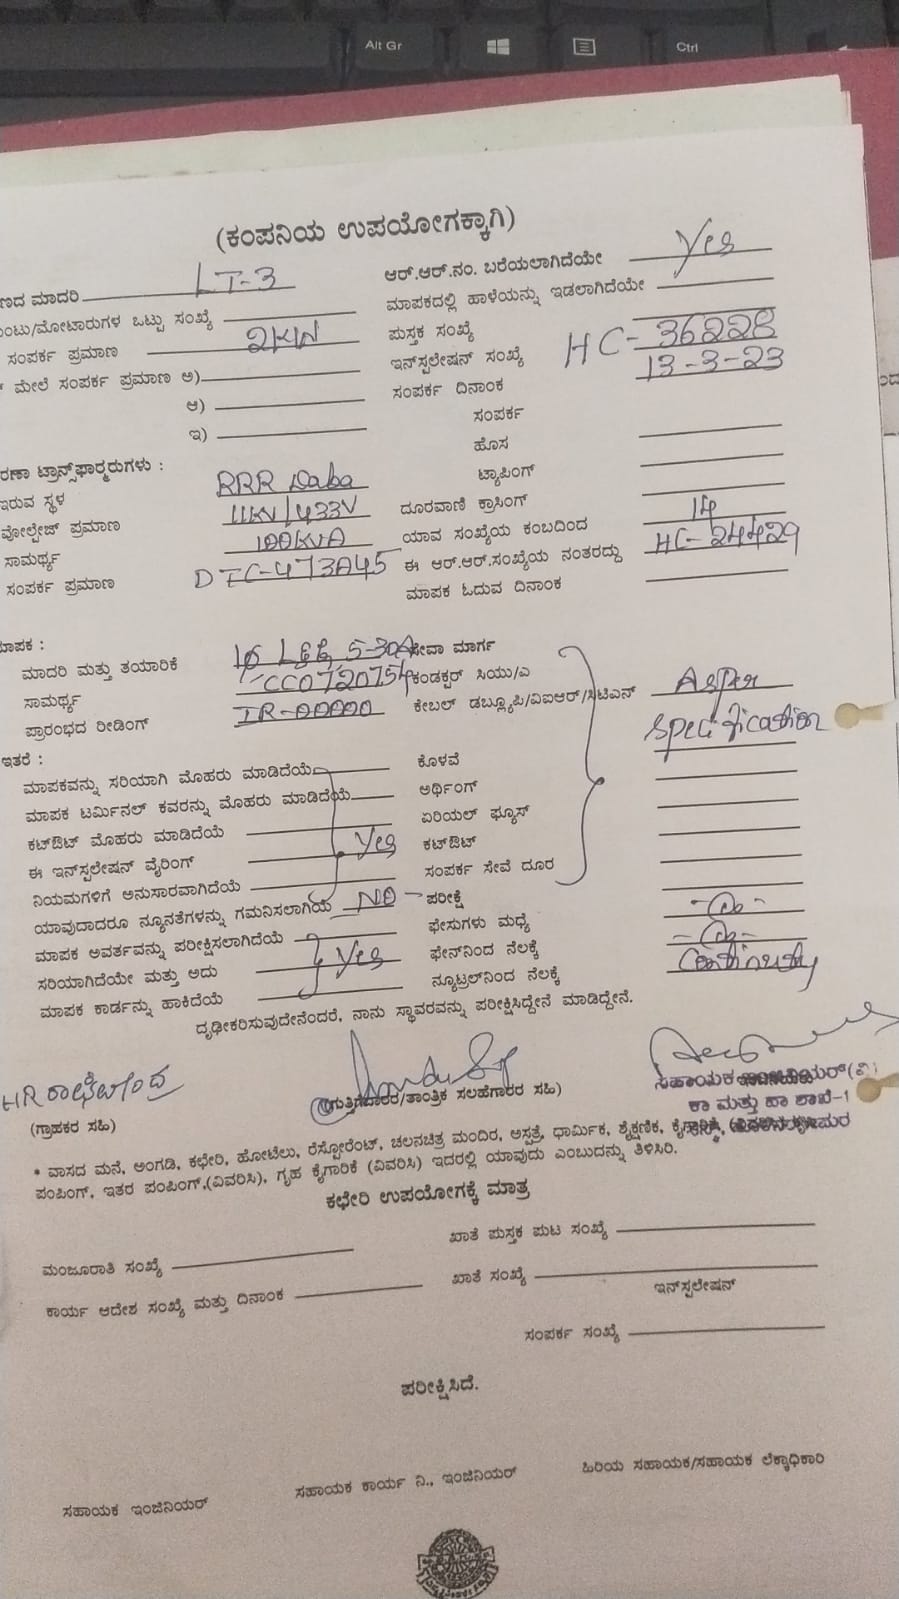 Alt Gr
Ctrl
(ಕಂಪನಿಯ ಉಪಯೋಗಕ್ಕಾಗಿ)
ಮಾದರಿ LT-3 ಆರ್.ಆರ್.ನಂ. ಬರೆಯಲಾಗಿದೆಯೇ Yes
ಒಟ್ಟು ಸಂಖ್ಯೆ ಮಾಪಕದಲ್ಲಿ ಹಾಳೆಯನ್ನು ಇಡಲಾಗಿದೆಯೇ
ಸಂಪರ್ಕ ಪ್ರಮಾಣ 2KW ಪುಸ್ತಕ ಸಂಖ್ಯೆ
ಮೇಲೆ ಸಂಪರ್ಕ ಪ್ರಮಾಣ ಅ) ಇನ್‌ಸ್ಪಲೇಷನ್ ಸಂಖ್ಯೆ HC-36228
ಆ) ಸಂಪರ್ಕ ದಿನಾಂಕ 13-3-23
ಇ) ಸಂಪರ್ಕ
ಹೊಸ
ಟ್ರಾನ್ಸ್‌ಫಾರ್ಮರುಗಳು : ಟ್ಯಾಪಿಂಗ್
ಇರುವ ಸ್ಥಳ RRR Daba
ವೋಲ್ಟೇಜ್ ಪ್ರಮಾಣ 11KV/433V ದೂರವಾಣಿ ಕ್ರಾಸಿಂಗ್
ಸಾಮರ್ಥ್ಯ 100KVA ಯಾವ ಸಂಖ್ಯೆಯ ಕಂಬದಿಂದ 14
ಸಂಪರ್ಕ ಪ್ರಮಾಣ DTC-473045 ಈ ಆರ್.ಆರ್.ಸಂಖ್ಯೆಯ ನಂತರದ್ದು HC-24429
ಮಾಪಕ ಓದುವ ದಿನಾಂಕ
ಮಾದರಿ ಮತ್ತು ತಯಾರಿಕೆ 5-30A ಸೇವಾ ಮಾರ್ಗ
ಸಾಮರ್ಥ್ಯ ಕಂಡಕ್ಟರ್ ಸಿಯು/ಎ
ಪ್ರಾರಂಭದ ರೀಡಿಂಗ್ IR-00000 ಕೇಬಲ್ ಡಬ್ಲ್ಯೂಪಿ/ವಿಐಆರ್/ಸಿಟಿಎನ್ Asper
Specification
ಇತರೆ :
ಮಾಪಕವನ್ನು ಸರಿಯಾಗಿ ಮೊಹರು ಮಾಡಿದೆಯೆ ಕೊಳವೆ
ಮಾಪಕ ಟರ್ಮಿನಲ್ ಕವರನ್ನು ಮೊಹರು ಮಾಡಿದೆಯೆ ಅರ್ಥಿಂಗ್
ಕಟ್‌ಔಟ್ ಮೊಹರು ಮಾಡಿದೆಯೆ ಏರಿಯಲ್ ಫ್ಯೂಸ್
ಈ ಇನ್‌ಸ್ಪಲೇಷನ್ ವೈರಿಂಗ್ Yes ಕಟ್‌ಔಟ್
ನಿಯಮಗಳಿಗೆ ಅನುಸಾರವಾಗಿದೆಯೆ ಸಂಪರ್ಕ ಸೇವೆ ದೂರ
ಯಾವುದಾದರೂ ನ್ಯೂನತೆಗಳನ್ನು ಗಮನಿಸಲಾಗಿಯೆ NO ಪರೀಕ್ಷೆ
ಮಾಪಕ ಅವರ್ತವನ್ನು ಪರೀಕ್ಷಿಸಲಾಗಿದೆಯೆ ಫೇಸುಗಳು ಮಧ್ಯೆ
ಸರಿಯಾಗಿದೆಯೇ ಮತ್ತು ಅದು Yes ಫೇನ್‌ನಿಂದ ನೆಲಕ್ಕೆ
ಮಾಪಕ ಕಾರ್ಡನ್ನು ಹಾಕಿದೆಯೆ ನ್ಯೂಟ್ರಲ್‌ನಿಂದ ನೆಲಕ್ಕೆ Continuity
ದೃಢೀಕರಿಸುವುದೇನೆಂದರೆ, ನಾನು ಸ್ಥಾವರವನ್ನು ಪರೀಕ್ಷಿಸಿದ್ದೇನೆ ಮಾಡಿದ್ದೇನೆ.
(ಗ್ರಾಹಕರ ಸಹಿ) (ಗುತ್ತಿಗೆದಾರರ/ತಾಂತ್ರಿಕ ಸಲಹೆಗಾರರ ಸಹಿ)
ಕಾ ಮತ್ತು ಹಾ ಶಾಖೆ-1
* ವಾಸದ ಮನೆ, ಅಂಗಡಿ, ಕಛೇರಿ, ಹೋಟೆಲು, ರೆಸ್ಟೋರೆಂಟ್, ಚಲನಚಿತ್ರ ಮಂದಿರ, ಆಸ್ಪತ್ರೆ, ಧಾರ್ಮಿಕ, ಶೈಕ್ಷಣಿಕ, ಕೈಗಾರಿಕೆ
ಪಂಪಿಂಗ್, ಇತರ ಪಂಪಿಂಗ್,(ವಿವರಿಸಿ), ಗೃಹ ಕೈಗಾರಿಕೆ (ವಿವರಿಸಿ) ಇದರಲ್ಲಿ ಯಾವುದು ಎಂಬುದನ್ನು ತಿಳಿಸಿರಿ.
ಕಛೇರಿ ಉಪಯೋಗಕ್ಕೆ ಮಾತ್ರ
ಮಂಜೂರಾತಿ ಸಂಖ್ಯೆ ಖಾತೆ ಪುಸ್ತಕ ಪುಟ ಸಂಖ್ಯೆ
ಕಾರ್ಯ ಆದೇಶ ಸಂಖ್ಯೆ ಮತ್ತು ದಿನಾಂಕ ಖಾತೆ ಸಂಖ್ಯೆ
ಇನ್‌ಸ್ಪಲೇಷನ್
ಸಂಪರ್ಕ ಸಂಖ್ಯೆ
ಪರೀಕ್ಷಿಸಿದೆ.
ಸಹಾಯಕ ಇಂಜಿನಿಯರ್ ಸಹಾಯಕ ಕಾರ್ಯ ನಿ., ಇಂಜಿನಿಯರ್ ಹಿರಿಯ ಸಹಾಯಕ/ಸಹಾಯಕ ಲೆಕ್ಕಾಧಿಕಾರಿ